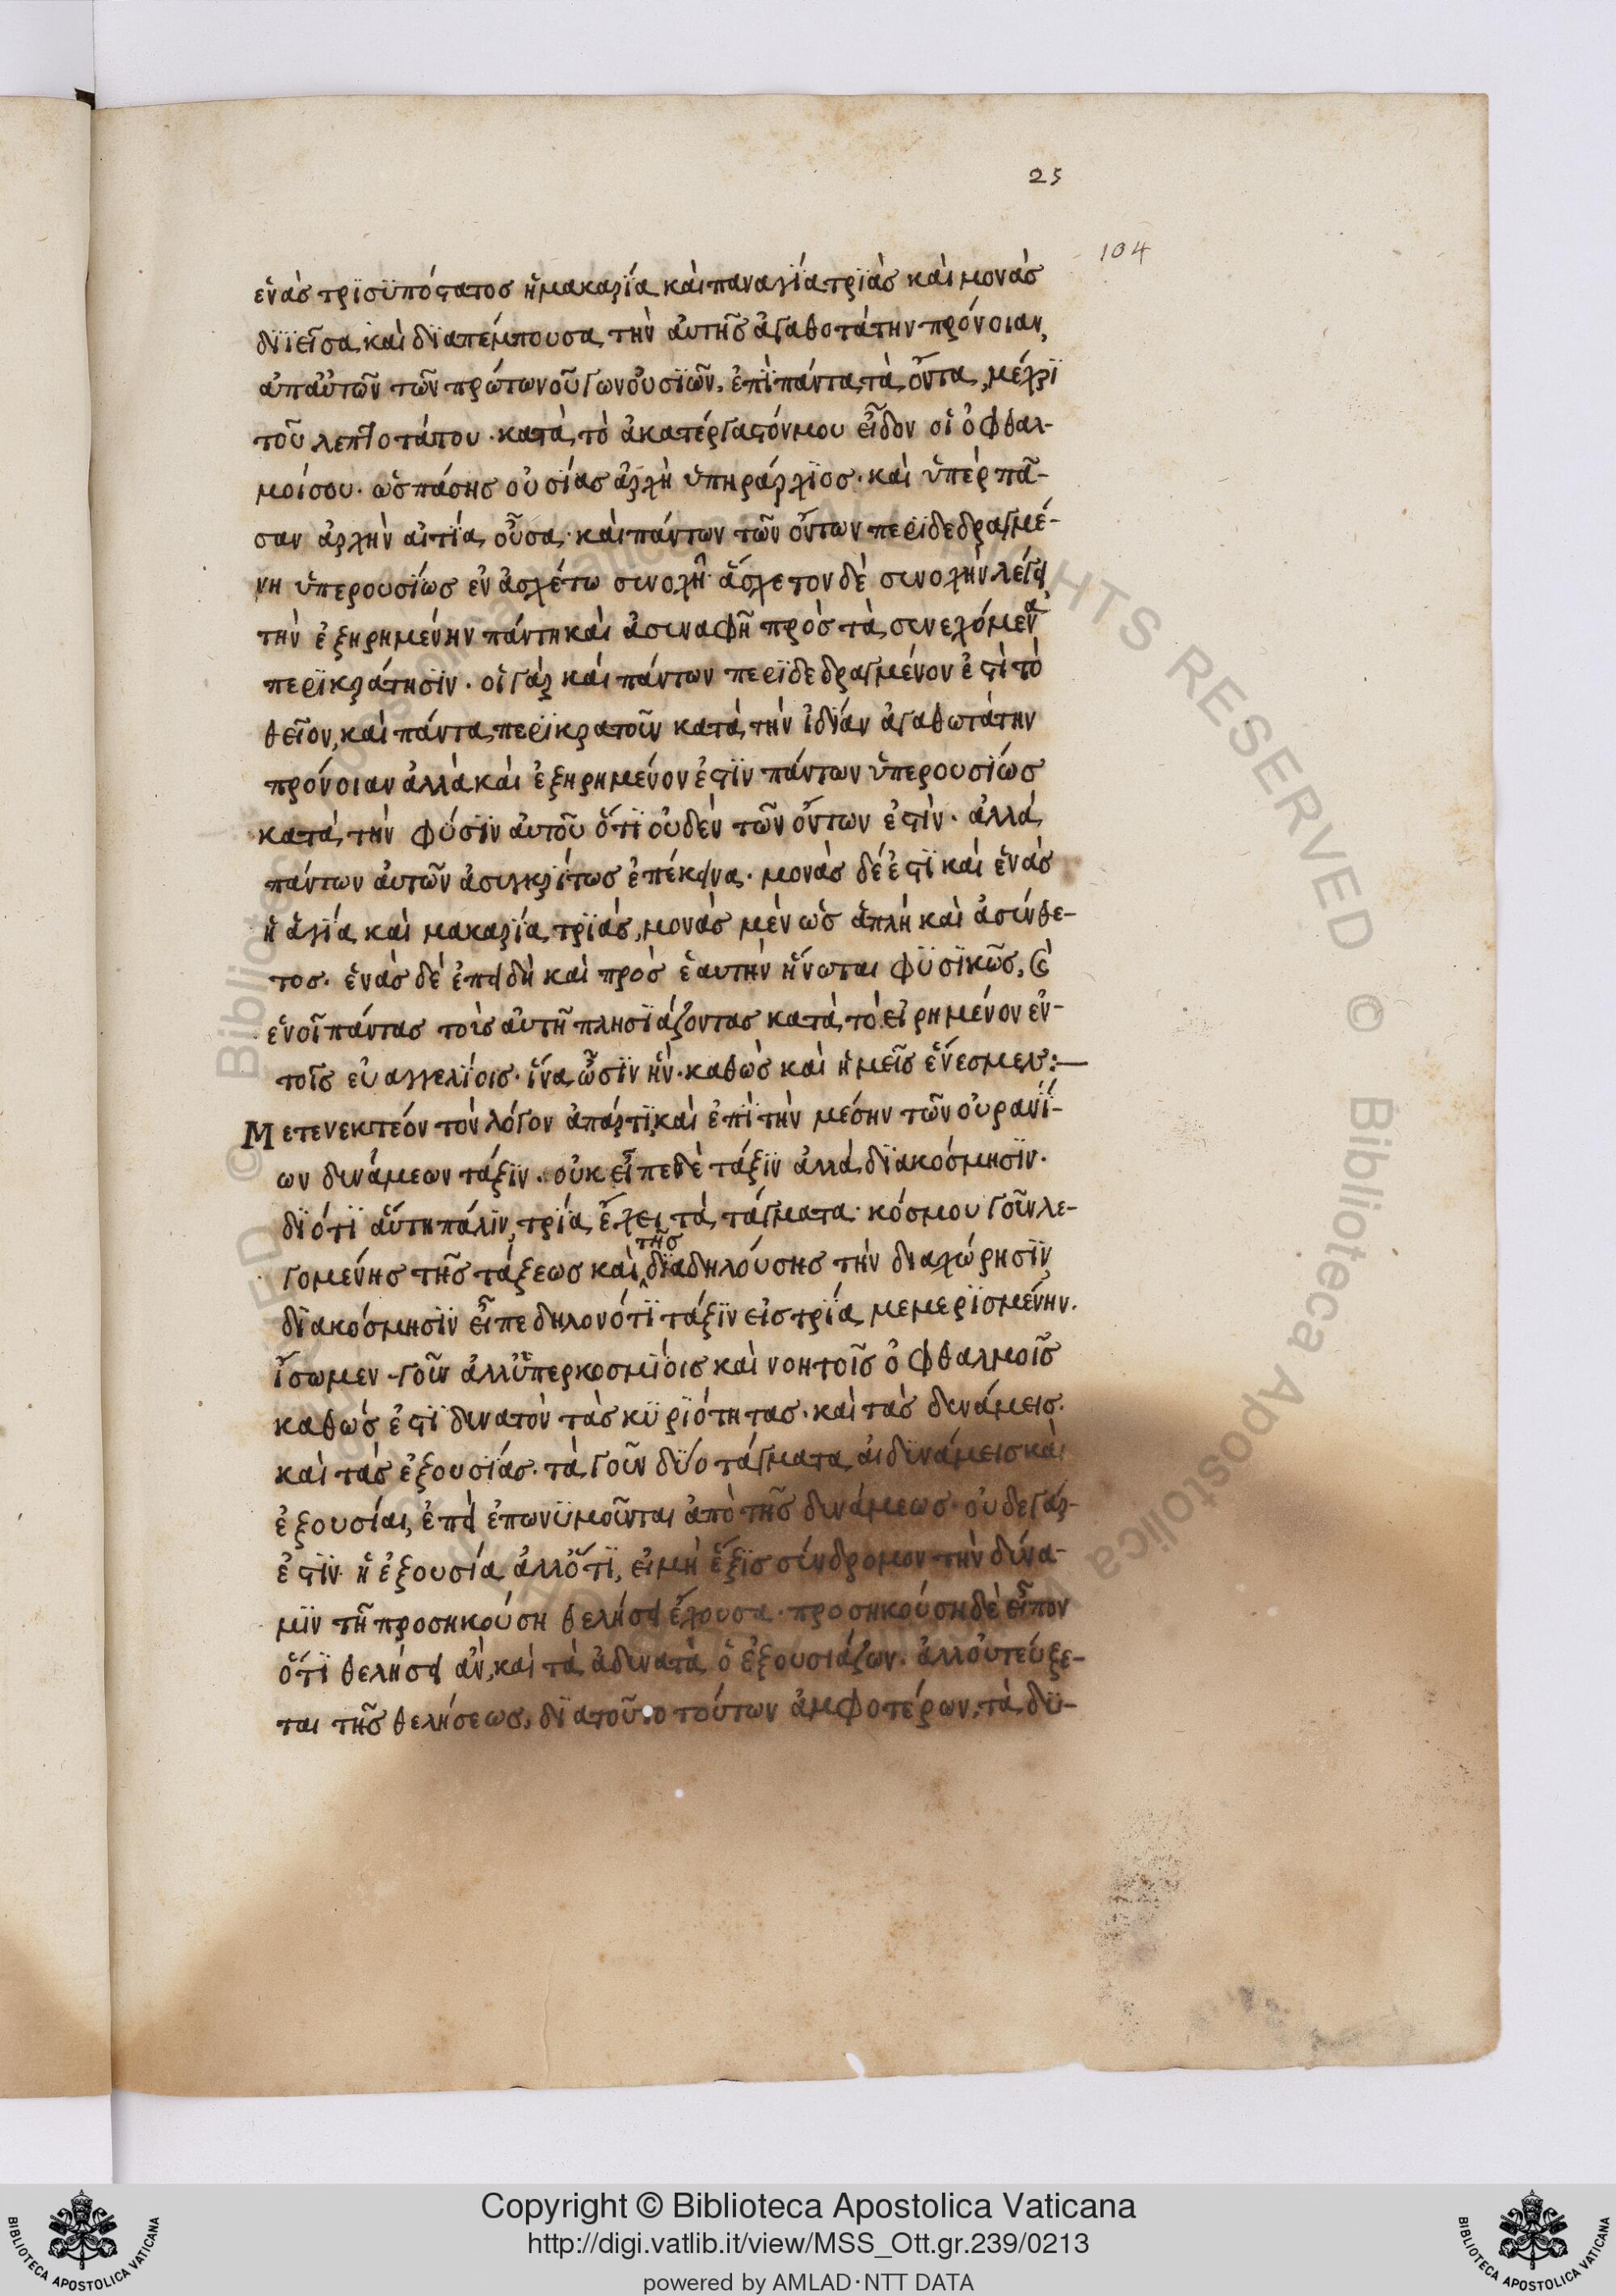 25
104
ἑνὰς τρϊσϋπόστατος ἡ μακαρία καὶ παναγία τρϊὰς καὶ μονὰς
δϊϊεῖσα καὶ δϊαπέμπουσα τὴν αὐτῆς ἀγαθοτάτην πρόνοιαν,
ἀπ αὐτῶν τῶν πρώτων οὖγων οὐσϊῶν, ἐπὶ πάντα τὰ ὄντα, μέχρϊ
τοῦ λεπτοτάτου· κατὰ τὸ ἀκατέργαστόν μου εἶδον οἱ ὀφθαλ-
μοί σου· ὡς πάσης οὐσίας ἀρχὴ ὑπηράρχϊος· καὶ ὑπὲρ πᾶ-
σαν ἀρχὴν αἰτία οὖσα· καὶ πάντων τῶν ὄντων περϊδεδραγμέ-
νη ὑπερουσίως ἐν ἀσχέτω συνοχῆ· ἄσχετον δὲ συνοχὴν λέγει
τὴν ἐξηρημένην πάντη καὶ ἀσυναφῆ πρὸς τὰ συνεχόμενα
περϊκράτησϊν· οἱ γὰρ καὶ πάντων περϊδεδραγμένον ἐστὶ τὸ
θεῖον, καὶ πάντα περϊκρατοῦν κατὰ τὴν ἰδίαν ἀγαθωτάτην
πρόνοιαν ἀλλὰ καὶ ἐξηρημένον ἐστϊν πάντων ὑπερουσίως
κατὰ τὴν φύσϊν αὐτοῦ ὅτϊ οὐδὲν τῶν ὄντων ἐστὶν· ἀλλὰ
πάντων αὐτῶν ἀσυγκρίτως ἐπέκεινα· μονὰς δέ ἐστϊ καὶ ἑνὰς
ἡ ἁγία καὶ μακαρία τρϊάς, μονὰς μὲν ὡς ἁπλή καὶ ἀσύνθε-
τος· ἑνὰς δὲ ἐπειδὴ καὶ πρὸς ἑαυτὴν ἥνωται φϋσϊκῶς, καὶ
ἑνοῖ πάντας τοὺς αὐτῆ πλησϊάζοντας κατὰ τὸ εἰρημένον ἐν-
τοῖς εὐαγγελίοις· ἵνα ὦσϊν ἥν· καθὼς καὶ ἡμεῖς ἕν ἐσμεν:—
Μετενεκτέον τὸν λόγον ἀπάρτϊ, καὶ ἐπὶ τὴν μέσην τῶν οὐρανί-
ων δυνάμεων τάξϊν· οὐκ εἶπε δὲ τάξϊν ἀλλὰ δϊακόσμησϊν·
δϊότϊ αὕτη πάλϊν, τρία ἔχει τὰ τάγματα· κόσμου γοῦν λε-
γομένης τῆς τάξεως καὶ τῆς δϊαδηλούσης τὴν δϊαχώρησϊν,
δϊακόσμησϊν εἶπε δηλονότϊ τάξϊν εἰς τρία μεμερϊσμένην.
ἴσωμεν γοῦν ἀλλ ὑπερκοσμίοις καὶ νοητοῖς ὀφθαλμοῖς
καθὼς ἐστϊ δυνατὸν τὰς κϋρϊότητας· καὶ τὰς δυνάμεις·
καὶ τὰς ἐξουσίας· τὰ γοῦν δύο τάγματα αἱ δϋνάμεις καὶ
ἐξουσίαι, ἐπεὶ ἐπωνϋμοῦνται ἀπὸ τῆς δυνάμεως· οὐδε γάρ-
ἐστϊν ἡ ἐξουσία ἀλλ ὅτϊ, εἰ μὴ ἕξϊς σύνδρομον τὴν δύνα-
μϊν τῆ προσηκούση θελήσει ἔχουσα· προσηκούση δὲ εἶπον
ὅτϊ θελήσει ἂν, καὶ τὰ ἀδυνατὰ ὁ ἐξουσιάζων· ἀλλ οὐ τεύξε-
ται τῆς θελήσεως, δϊα τοῦτο τούτων ἀμφοτέρων, τὰ δϋ-
Copyright © Biblioteca Apostolica Vaticana
http://digi.vatlib.it/view/MSS_Ott.gr.239/0213
powered by AMLAD·NTT DATA